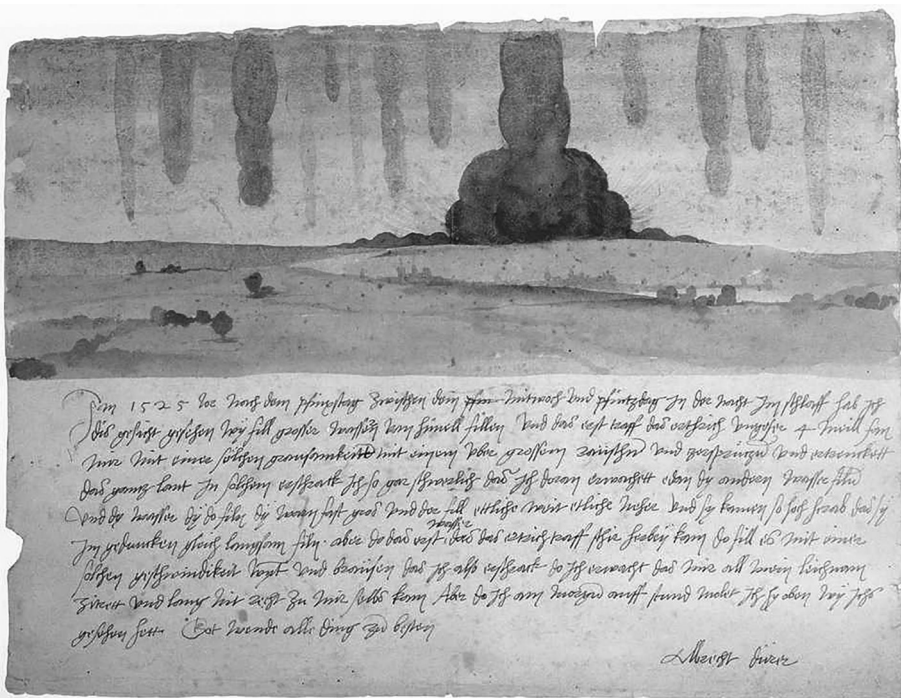 Im 1525 Jor nach dem pfinxstag zwischen dem Mitwoch und pfintzdag in der nacht im schlaff hab ich
dis gesicht gesehen wy fill grosser wassern van himell fillen Und das erst traff das erthrich ungefer 4 meill fan
mir mit einer solchen grausamkeitt mit einem uber grossem raüschn und zersprützn und ertrenckett
das gancz lant In solchem erschrack ich so gar schwerlich das ich doran erwachett edan dy andern wasser filn
Und dy wasser dy do filn dy warn fast gros und der fill ettliche weit etliche neher und sy kamen so hoch herab das sy
im geduncken gleich langsam filn. aber do das erst wasser das das ertrich traff schir herbey kam do fill es mit einer
solchen geschwindikeit wynt und braüsen das ich also erschrack do ich erwacht das mir all mein leichnam
zitrett und lang nit recht zu mir selbs kam Aber do ich am morgn auff stund molet ich hy oben wy ichs
gesehen hett. Got wende alle ding zu besten
Albrecht dürer